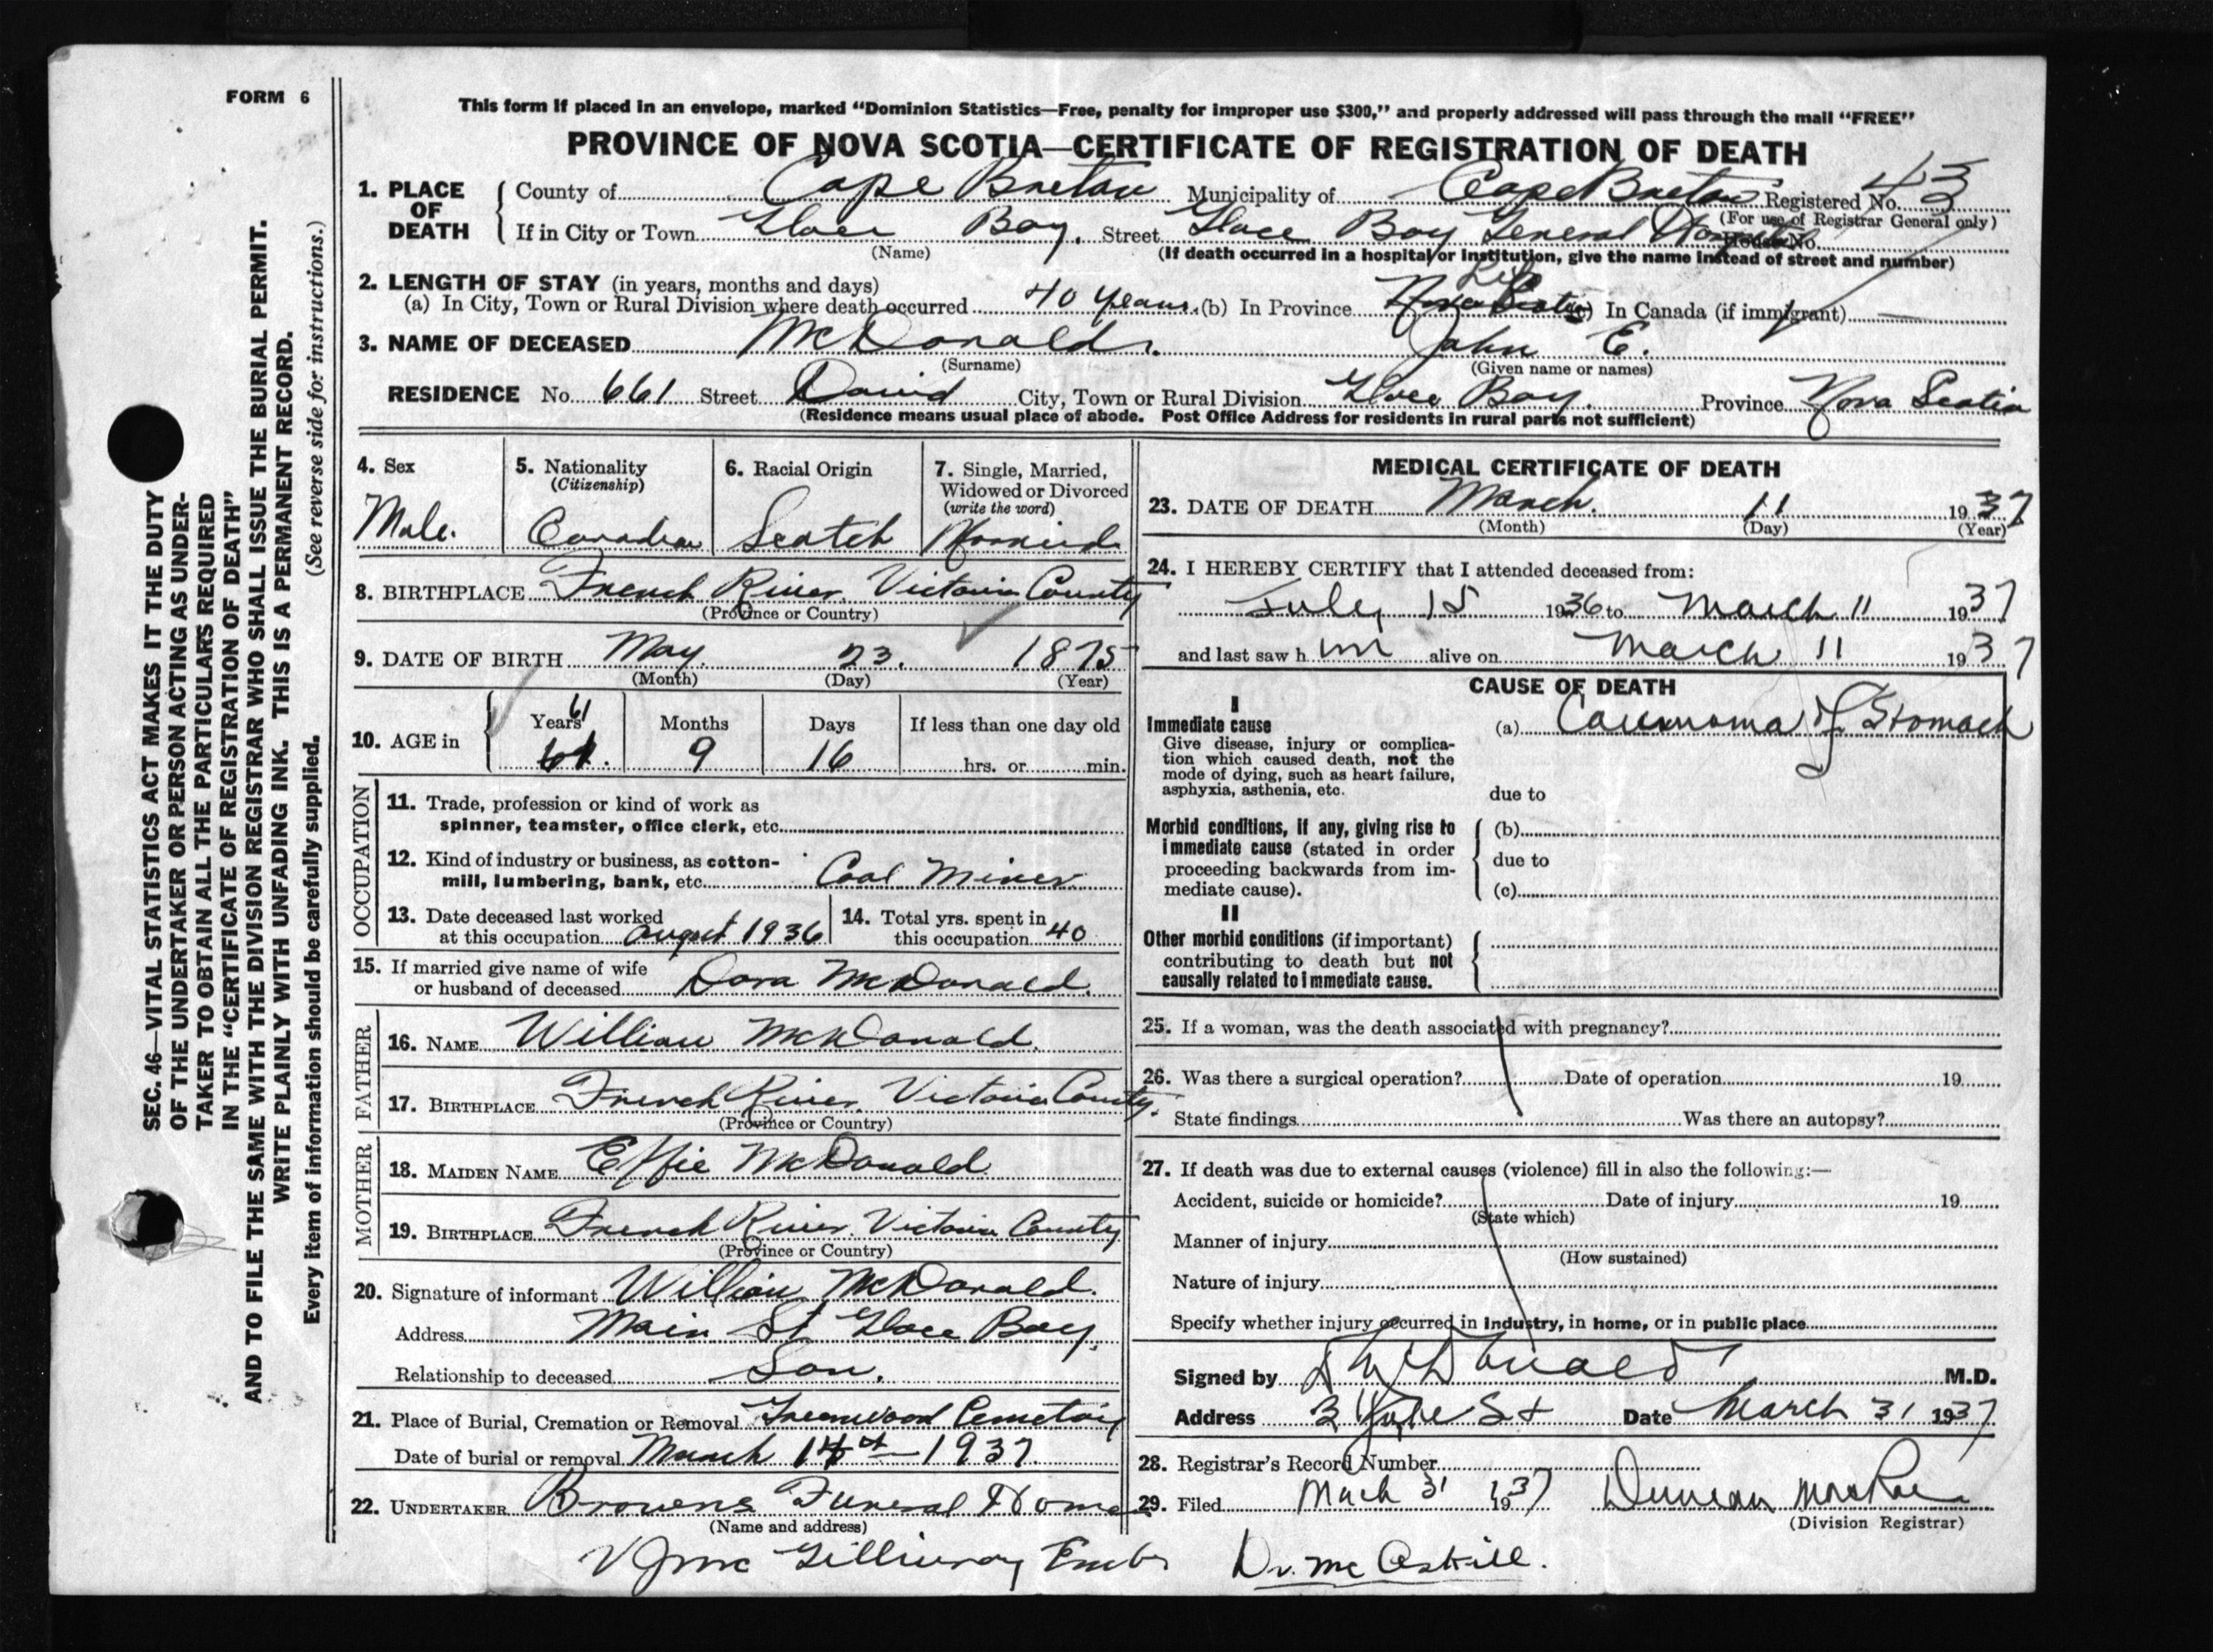 FORM 6
This form if placed in an envelope, marked "Dominion Statistics—Free, penalty for improper use $300," and properly addressed will pass through the mail "FREE"
PROVINCE OF NOVA SCOTIA—CERTIFICATE OF REGISTRATION OF DEATH
1. PLACE OF DEATH County of Cape Breton Municipality of Cape Breton Registered No. 43
(For use of Registrar General only)
If in City or Town Glace Bay. Street Glace Bay General Hospital House No.
(Name) (If death occurred in a hospital or institution, give the name instead of street and number)
2. LENGTH OF STAY (in years, months and days)
(a) In City, Town or Rural Division where death occurred 40 years. (b) In Province Nova Scotia Life (c) In Canada (if immigrant) —
3. NAME OF DECEASED McDonald. John E.
(Surname) (Given name or names)
RESIDENCE No. 661 Street David City, Town or Rural Division Glace Bay. Province Nova Scotia
(Residence means usual place of abode. Post Office Address for residents in rural parts not sufficient)
4. Sex Male.
5. Nationality (Citizenship) Canadian
6. Racial Origin Scotch
7. Single, Married, Widowed or Divorced (write the word) Married
8. BIRTHPLACE French River. Victoria County
(Province or Country)
9. DATE OF BIRTH May. 23. 1875
(Month) (Day) (Year)
10. AGE in Years 61 61. Months 9 Days 16 If less than one day old hrs. or min.
OCCUPATION
11. Trade, profession or kind of work as
spinner, teamster, office clerk, etc.
12. Kind of industry or business, as cotton-
mill, lumbering, bank, etc. Coal Miner.
13. Date deceased last worked
at this occupation August 1936
14. Total yrs. spent in
this occupation 40
15. If married give name of wife
or husband of deceased Dora McDonald.
FATHER
16. NAME William McDonald.
17. BIRTHPLACE French River. Victoria County.
(Province or Country)
MOTHER
18. MAIDEN NAME Effie McDonald
19. BIRTHPLACE French River. Victoria County
(Province or Country)
20. Signature of informant William McDonald.
Address Main St Glace Bay.
Relationship to deceased Son.
21. Place of Burial, Cremation or Removal Greenwood Cemetery
Date of burial or removal March 14th 1937
22. UNDERTAKER Browens Funeral Home
(Name and address)
V J McGillivray Emb.
MEDICAL CERTIFICATE OF DEATH
23. DATE OF DEATH March. 11 1937
(Month) (Day) (Year)
24. I HEREBY CERTIFY that I attended deceased from:
July 15 1936 to March 11 1937
and last saw him alive on March 11 1937
CAUSE OF DEATH
I
Immediate cause (a) Carcinoma of Stomach
Give disease, injury or complica-
tion which caused death, not the
mode of dying, such as heart failure,
asphyxia, asthenia, etc.
due to
Morbid conditions, if any, giving rise to (b)
immediate cause (stated in order
proceeding backwards from im- due to
mediate cause). (c)
II
Other morbid conditions (if important)
contributing to death but not
causally related to immediate cause.
25. If a woman, was the death associated with pregnancy?
26. Was there a surgical operation? Date of operation 19
State findings Was there an autopsy?
27. If death was due to external causes (violence) fill in also the following:—
Accident, suicide or homicide? Date of injury 19
(State which)
Manner of injury
(How sustained)
Nature of injury
Specify whether injury occurred in industry, in home, or in public place
Signed by McDonald M.D.
Address 3 Yorke St Date March 31 1937
28. Registrar's Record Number
29. Filed March 31 1937 Duncan MacRae
(Division Registrar)
Dr. McAskill.
SEC. 46—VITAL STATISTICS ACT MAKES IT THE DUTY
OF THE UNDERTAKER OR PERSON ACTING AS UNDER-
TAKER TO OBTAIN ALL THE PARTICULARS REQUIRED
IN THE "CERTIFICATE OF REGISTRATION OF DEATH"
AND TO FILE THE SAME WITH THE DIVISION REGISTRAR WHO SHALL ISSUE THE BURIAL PERMIT.
WRITE PLAINLY WITH UNFADING INK. THIS IS A PERMANENT RECORD.
Every item of information should be carefully supplied. (See reverse side for instructions.)